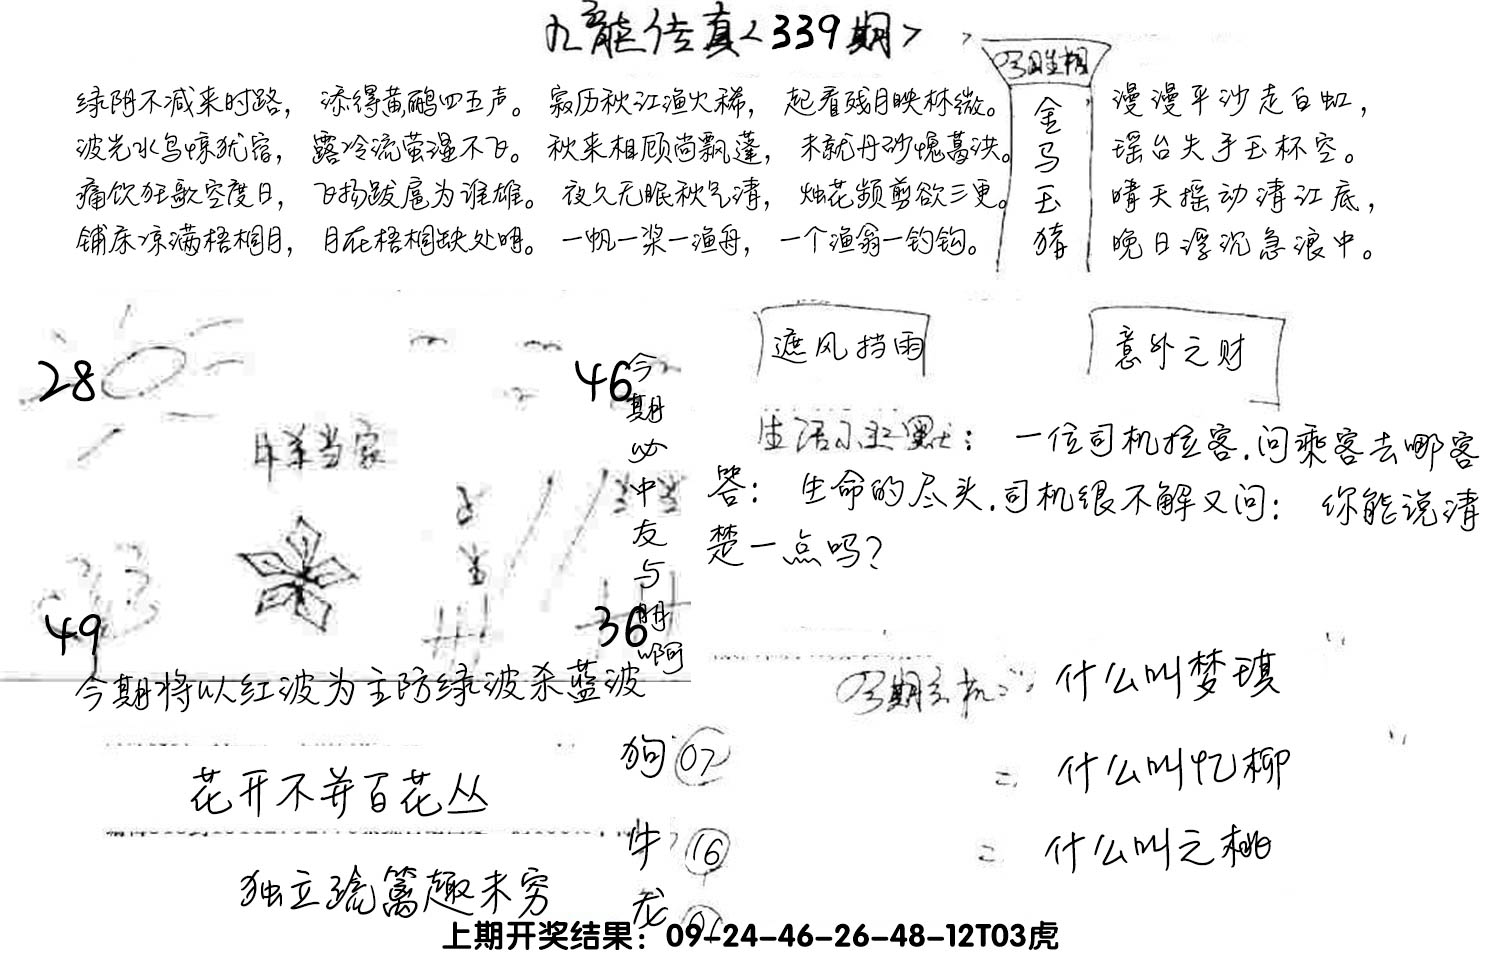 九龙传真<339期>
绿阴不减来时路， 添得黄鹂四五声。 寂历秋江渔火稀， 起看残月映林微。
波光水鸟惊犹宿， 露冷流萤湿不飞。 秋来相顾尚飘蓬， 未就丹砂愧葛洪。
痛饮狂歌空度日， 飞扬跋扈为谁雄。 夜久无眠秋气清， 烛花频剪欲三更。
铺床凉满梧桐月， 月在梧桐缺处明。 一帆一桨一渔舟， 一个渔翁一钓钩。
金
马
玉
猪
漫漫平沙走白虹，
瑶台失手玉杯空。
晴天摇动清江底，
晚日浮沉急浪中。
28
46
49
36
今期必中友与朋啊
今期将以红波为主防绿波杀蓝波
遮风挡雨
意外之财
一位司机拉客.问乘客去哪客
答： 生命的尽头.司机很不解又问： 你能说清
楚一点吗？
什么叫梦琪
二 什么叫忆柳
二 什么叫之桃
花开不并百花丛
独立疏篱趣未穷
狗 07
牛 16
龙
上期开奖结果：09-24-46-26-48-12T03虎